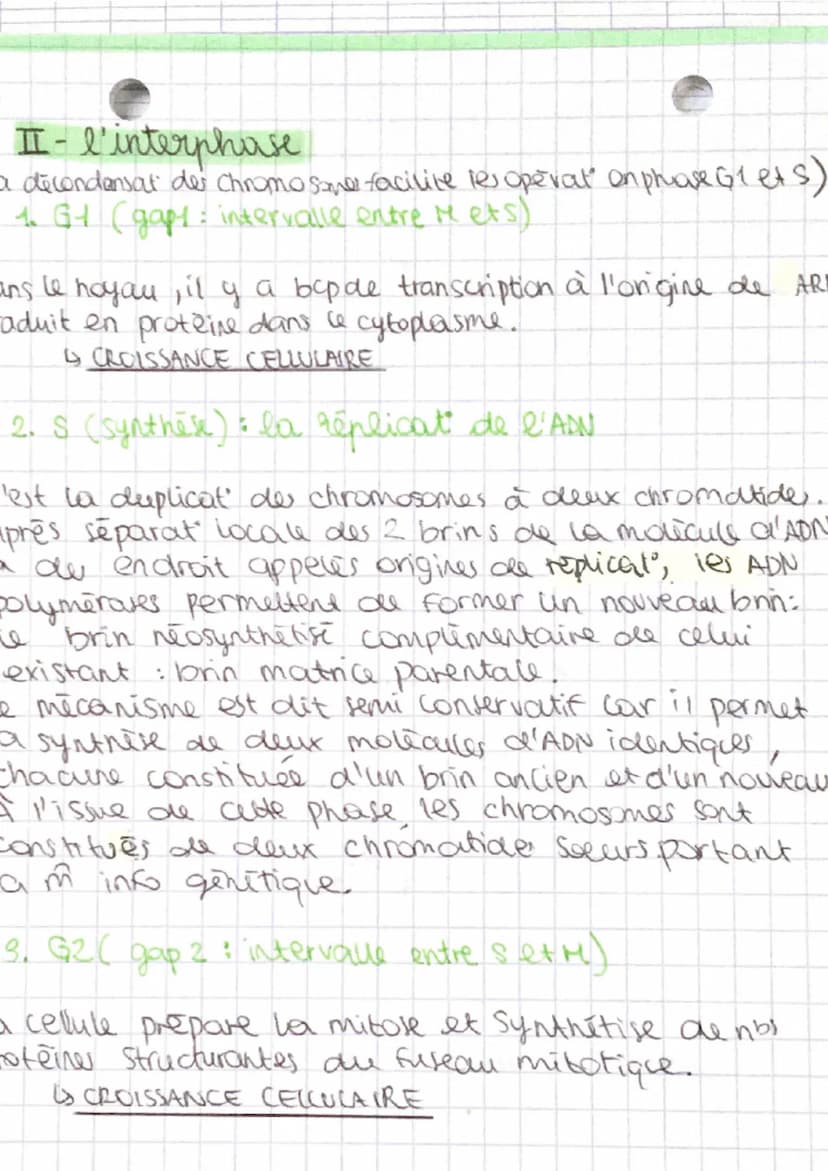 II - l'interphase
a décondensat° des chromosomes facilite les opérat° en phase G1 et S)
1. G1 (gap1 : intervalle entre M et S)
ans le noyau, il y a bcp de transcription à l'origine de ARN
aduit en protéine dans le cytoplasme.
↳ CROISSANCE CELLULAIRE
2. S (synthèse) : la réplicat° de l'ADN
'est la duplicat° des chromosomes à deux chromatides.
près séparat° locale des 2 brins de la molécule d'ADN
à des endroit appelés origines de réplicat°, les ADN
polymérases permettent de former un nouveau brin:
le brin néosynthétisé complémentaire de celui
existant : brin matrice parentale.
e mécanisme est dit semi conservatif car il permet
a synthèse de deux molécules d'ADN identiques,
chacune constituée d'un brin ancien et d'un nouveau
À l'issue de cette phase, les chromosomes sont
constitués de deux chromatide soeurs portant
a m̂ info génétique.
3. G2 ( gap 2 : intervalle entre S et M)
a cellule prépare la mitose et synthétise de nbs
rotéines structurantes du fuseau mitotique.
↳ CROISSANCE CELLULAIRE